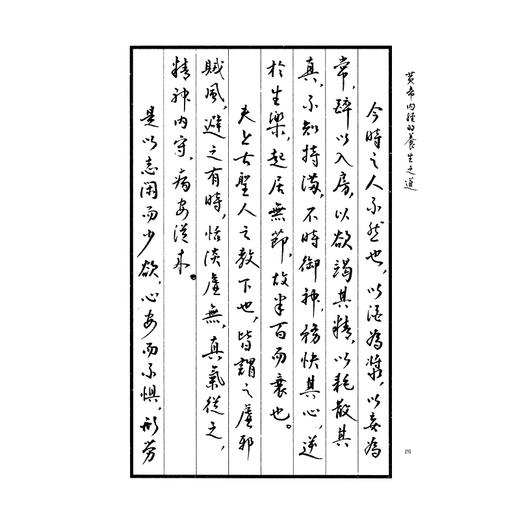 黄帝内經的養生之道
今時之人不然也，以酒為漿，以妄為
常，醉以入房，以欲竭其精，以耗散其
真，不知持滿，不時御神，務快其心，逆
於生樂，起居無節，故半百而衰也。
夫上古聖人之教下也，皆謂之虛邪
賊風，避之有時，恬淡虛無，真氣從之，
精神內守，病安從來。
是以志閑而少欲，心安而不懼，形勞
四